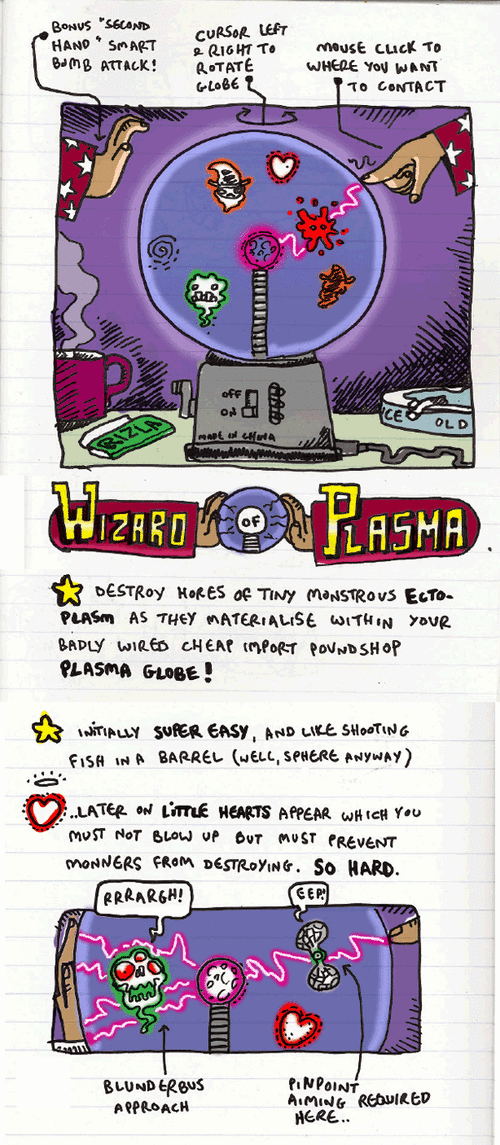 BONUS "SECOND
HAND" SMART
BOMB ATTACK!
CURSOR LEFT
& RIGHT TO
ROTATE
GLOBE
MOUSE CLICK TO
WHERE YOU WANT
TO CONTACT
OFF
ON
MADE IN CHINA
RIZLA
ICE OLD
WIZARD OF PLASMA
DESTROY HORES OF TINY MONSTROUS ECTO-
PLASM AS THEY MATERIALISE WITHIN YOUR
BADLY WIRED CHEAP IMPORT POUNDSHOP
PLASMA GLOBE!
INITIALLY SUPER EASY, AND LIKE SHOOTING
FISH IN A BARREL (WELL, SPHERE ANYWAY)
..LATER ON LITTLE HEARTS APPEAR WHICH YOU
MUST NOT BLOW UP BUT MUST PREVENT
MONNERS FROM DESTROYING. SO HARD.
RRRARGH!
EEP!
BLUNDERBUS
APPROACH
PINPOINT
AIMING REQUIRED
HERE..